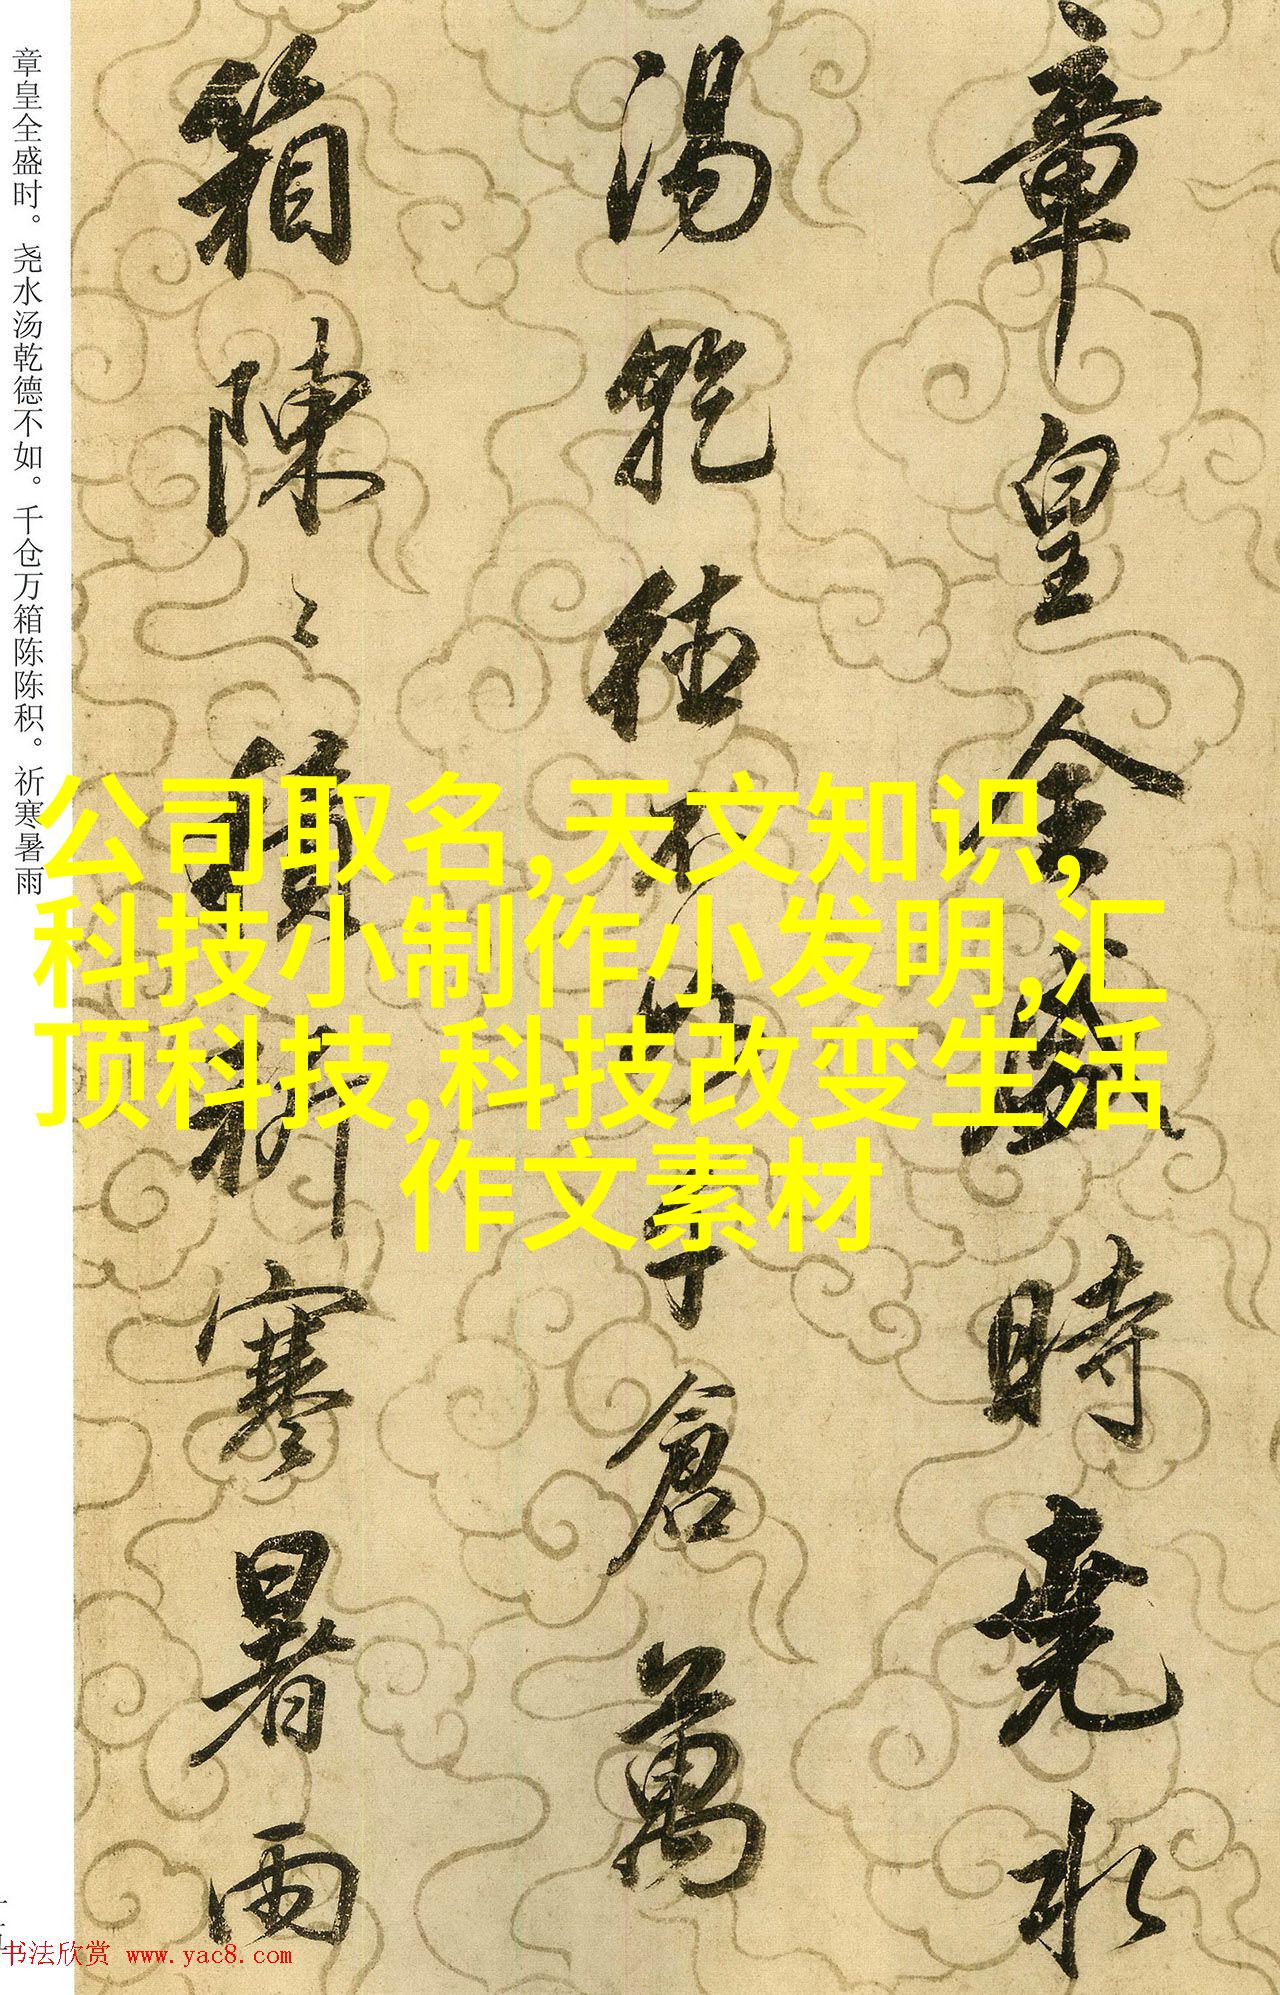 章皇全盛時堯水
湯乾德不如千倉萬
箱陳〻積祈寒暑雨
章皇全盛时。尧水汤乾德不如。千仓万箱陈陈积。祈寒暑雨
公司取名,天文知识,
科技小制作小发明,汇
顶科技,科技改变生活
作文素材
书法欣赏 www.yac8.com